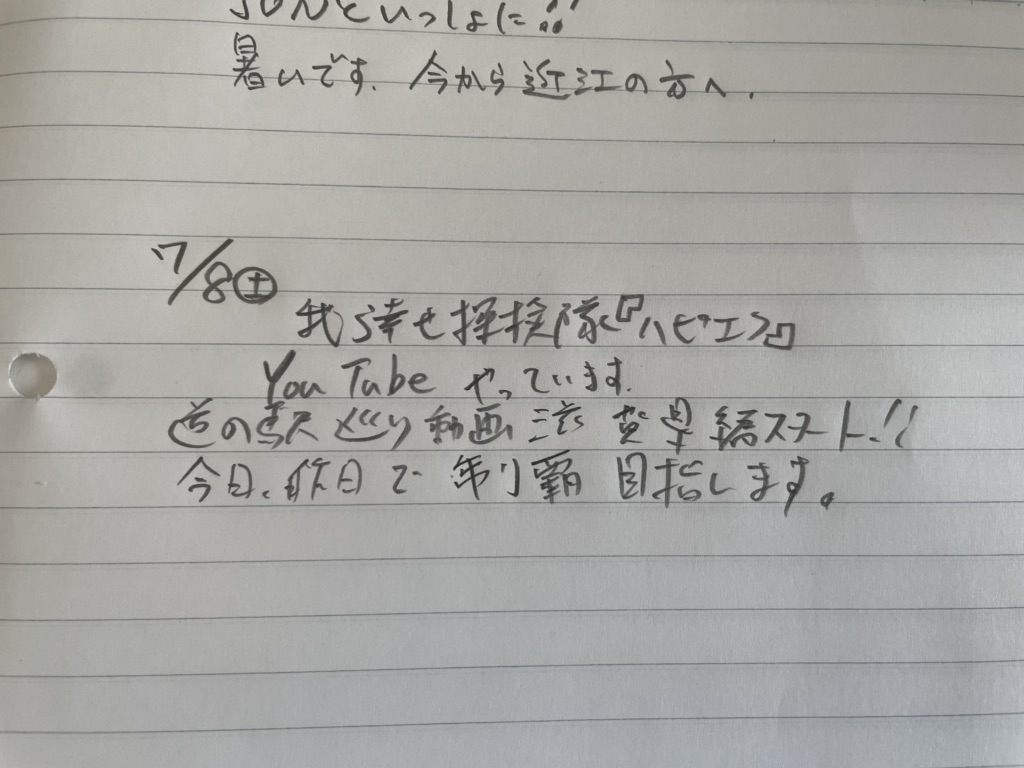 SONといっしょに!!
暑いです. 今から近江の方へ.
7/8㊏
我ら幸せ探検隊『ハピエン』
YouTube やっています.
道の駅巡り動画 滋賀県編スタート!!
今日、昨日で 制覇 目指します。